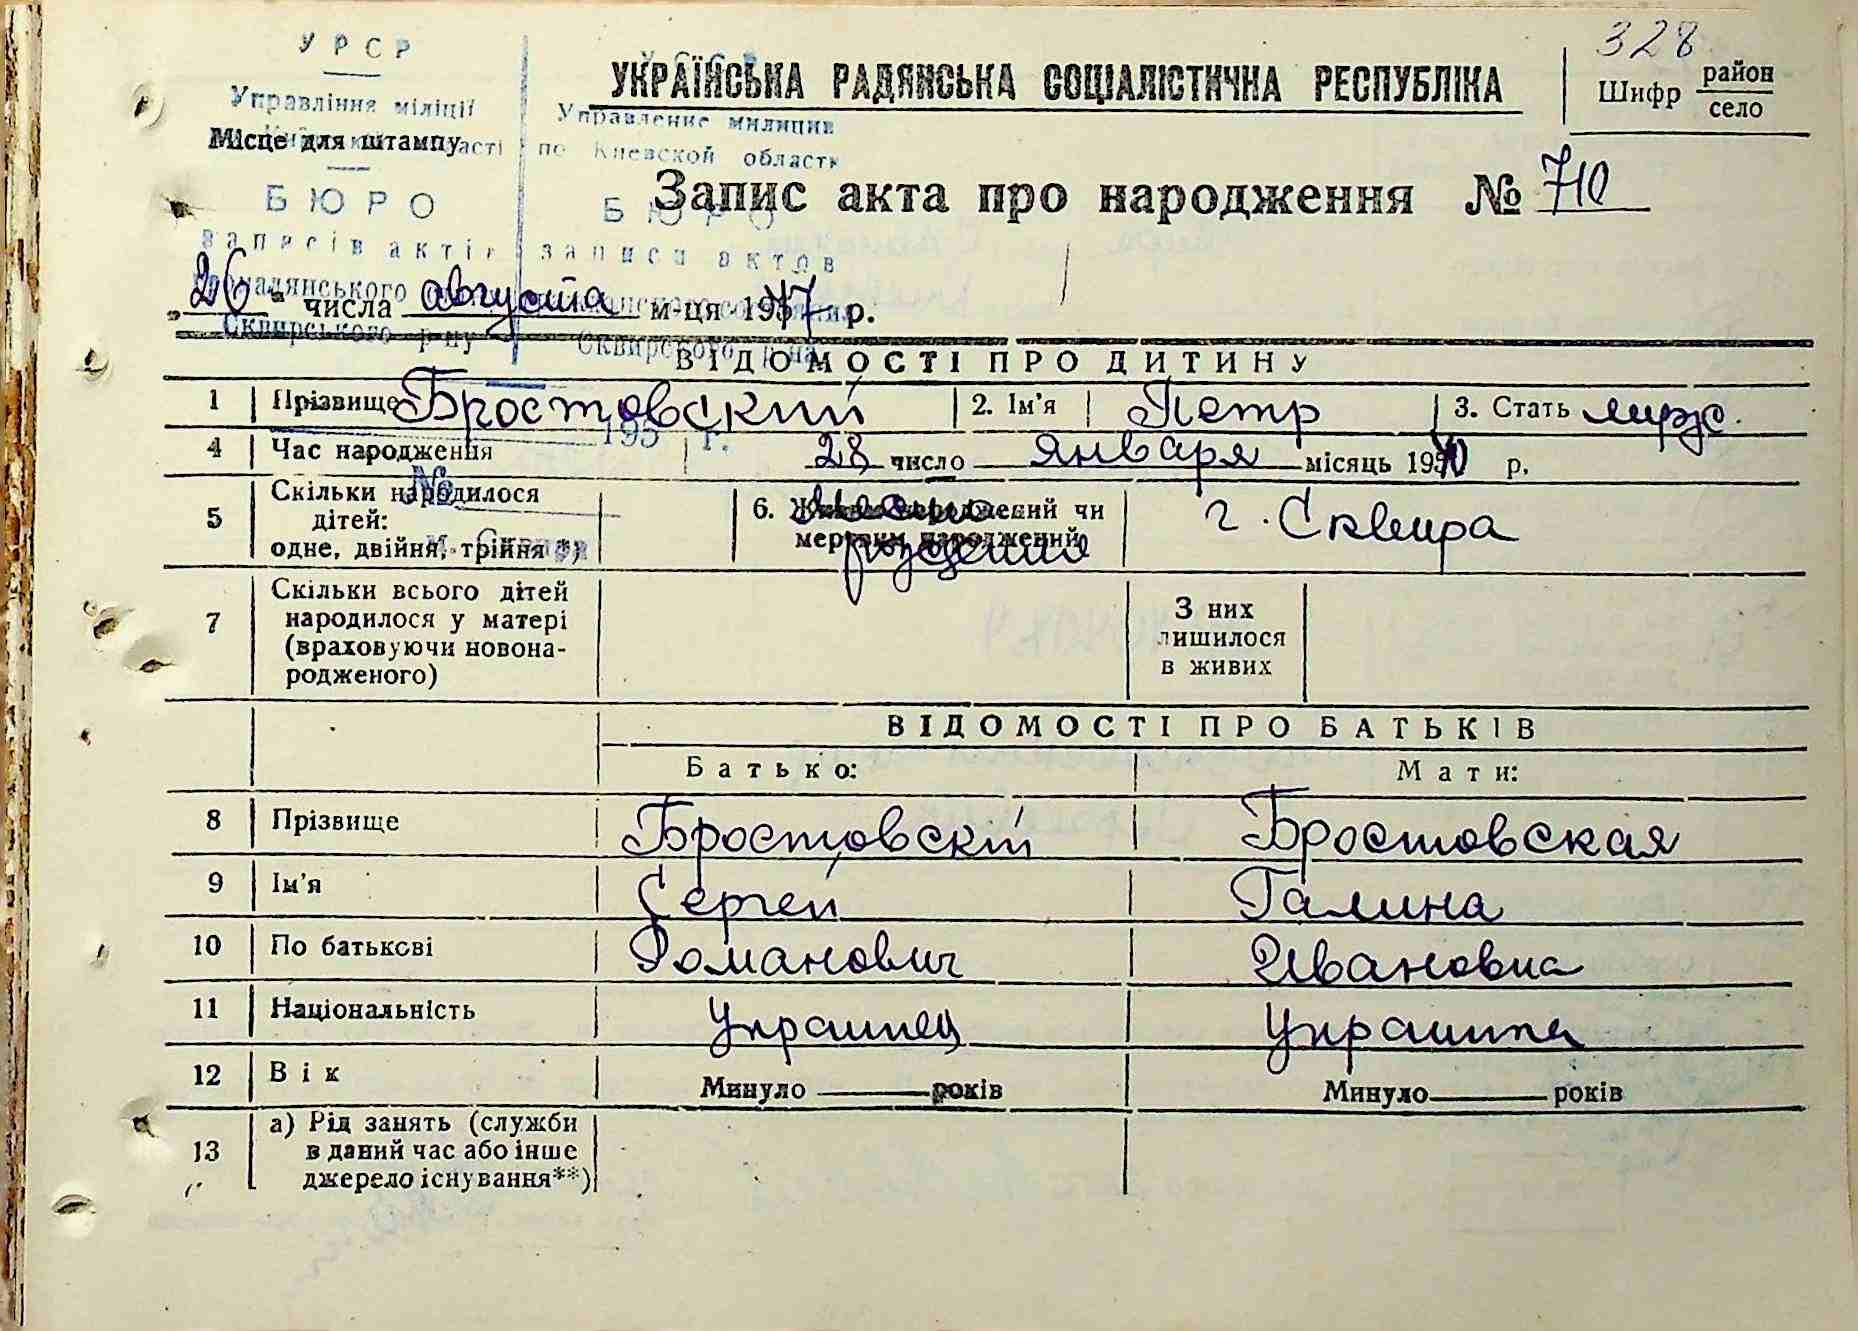 328
УРСР
УКРАЇНСЬКА РАДЯНСЬКА СОЦІАЛІСТИЧНА РЕСПУБЛІКА
Шифр район село
Управління міліції
Управление милиции
Місце для штампу
по Киевской области
БЮРО
БЮРО
Запис акта про народження № 710
записів актів
записи актов
„26" числа августа м-ця 1957 р.
Сквирського р-ну
Сквирского р-на
ВІДОМОСТІ ПРО ДИТИНУ
1 Прізвище Бростовский 2. Ім'я Петр 3. Стать муж.
195 г.
4 Час народження 28 число января місяць 19 р.
№
5 Скільки народилося дітей: одне, двійня, трійня *) 6. Живим народжений чи мертвим народжений Место рождения г. Сквира
м. Сквира
7 Скільки всього дітей народилося у матері (враховуючи новонародженого) З них лишилося в живих
ВІДОМОСТІ ПРО БАТЬКІВ
Батько: Мати:
8 Прізвище Бростовский Бростовская
9 Ім'я Сергей Галина
10 По батькові Романович Ивановна
11 Національність Украинец Украинка
12 Вік Минуло років Минуло років
13 а) Рід занять (служби в даний час або інше джерело існування**)